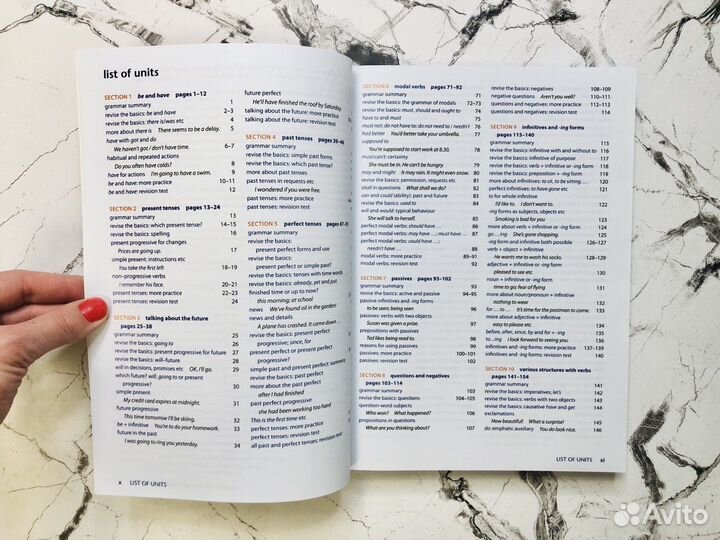 list of units
SECTION 1 be and have pages 1–12
grammar summary 1
revise the basics: be and have 2–3
revise the basics: there is/was etc 4
more about there is There seems to be a delay. 5
have with got and do
We haven't got / don't have time. 6–7
habitual and repeated actions
Do you often have colds? 8
have for actions I'm going to have a swim. 9
be and have: more practice 10–11
be and have: revision test 12
SECTION 2 present tenses pages 13–24
grammar summary 13
revise the basics: which present tense? 14–15
revise the basics: spelling 16
present progressive for changes
Prices are going up. 17
simple present: instructions etc
You take the first left 18–19
non-progressive verbs
I remember his face. 20–21
present tenses: more practice 22–23
present tenses: revision test 24
SECTION 3 talking about the future
pages 25–38
grammar summary 25
revise the basics: going to 26
revise the basics: present progressive for future 27
revise the basics: will-future 28
will in decisions, promises etc OK, I'll go. 29
which future? will, going to or present
progressive? 30
simple present
My credit card expires at midnight. 31
future progressive
This time tomorrow I'll be skiing. 32
be + infinitive You're to do your homework. 33
future in the past
I was going to ring you yesterday. 34
future perfect
He'll have finished the roof by Saturday.
talking about the future: more practice
talking about the future: revision test
SECTION 4 past tenses pages 39–46
grammar summary
revise the basics: simple past forms
revise the basics: which past tense?
more about past tenses
past tenses in requests etc
I wondered if you were free.
past tenses: more practice
past tenses: revision test
SECTION 5 perfect tenses pages 47–70
grammar summary
revise the basics:
present perfect forms and use
revise the basics:
present perfect or simple past?
revise the basics: tenses with time words
revise the basics: already, yet and just
finished time or up to now?
this morning; at school
news We've found oil in the garden!
news and details
A plane has crashed. It came down
present perfect progressive
progressive; since, for
present perfect or present perfect
progressive?
simple past and present perfect: summary
revise the basics: past perfect
more about the past perfect
after I had finished
past perfect progressive
she had been working too hard
This is the first time etc
perfect tenses: more practice
perfect tenses: revision test
all past and perfect tenses: revision test
x LIST OF UNITS
SECTION 6 modal verbs pages 71–92
grammar summary 71
revise the basics: the grammar of modals 72–73
revise the basics: must, should and ought to 74
have to and must 75
must not, do not have to; do not need to / needn't 76
had better You'd better take your umbrella. 77
supposed to
You're supposed to start work at 8.30. 78
must/can't: certainty
She must be in. He can't be hungry. 79
may and might It may rain. It might even snow. 80
revise the basics: permission, requests etc 81
shall in questions What shall we do? 82
can and could (ability): past and future 83
revise the basics: used to 84
will and would: typical behaviour
She will talk to herself. 85
perfect modal verbs: should have … 86
perfect modal verbs: may have … / must have … 87
perfect modal verbs: could have …;
needn't have … 88
modal verbs: more practice 89–91
modal verbs: revision test 92
SECTION 7 passives pages 93–102
grammar summary 93
revise the basics: active and passive 94–95
passive infinitives and -ing forms
to be seen; being seen 96
passives: verbs with two objects
Susan was given a prize. 97
prepositions with passives
Ted likes being read to. 98
reasons for using passives 99
passives: more practice 100–101
passives: revision test 102
SECTION 8 questions and negatives
pages 103–114
grammar summary 103
revise the basics: questions 104–105
question-word subjects
Who won? What happened? 106
prepositions in questions
What are you thinking about? 107
revise the basics: negatives 108–109
negative questions Aren't you well? 110–111
questions and negatives: more practice 112–113
questions and negatives: revision test 114
SECTION 9 infinitives and -ing forms
pages 115–140
grammar summary 115
revise the basics: infinitive with and without to 116
revise the basics: infinitive of purpose 117
revise the basics: verb + infinitive or -ing form 118
revise the basics: preposition + -ing form 119
more about infinitives: to sit, to be sitting, … 120
perfect infinitives: to have gone etc 121
to for whole infinitive
I'd like to. I don't want to. 122
-ing forms as subjects, objects etc
Smoking is bad for you. 123
more about verb + infinitive or -ing form 124
go …ing She's gone shopping. 125
-ing form and infinitive both possible 126–127
verb + object + infinitive
He wants me to wash his socks. 128–129
adjective + infinitive or -ing form
pleased to see etc 130
noun + infinitive or -ing form
time to go; fear of flying 131
more about noun/pronoun + infinitive
nothing to wear 132
for … to … It's for the postman to come. 133
more about adjective + infinitive
easy to please etc 134
before, after, since, by and for + -ing 135
to …ing I look forward to seeing you. 136
infinitives and -ing forms: more practice 137–139
infinitives and -ing forms: revision test 140
SECTION 10 various structures with verbs
pages 141–154
grammar summary 141
revise the basics: imperatives; let's 142
revise the basics: verbs with two objects 143
revise the basics: causative have and get 144
exclamations
How beautiful! What a surprise! 145
do: emphatic auxiliary You do look nice. 146
LIST OF UNITS xi
Avito